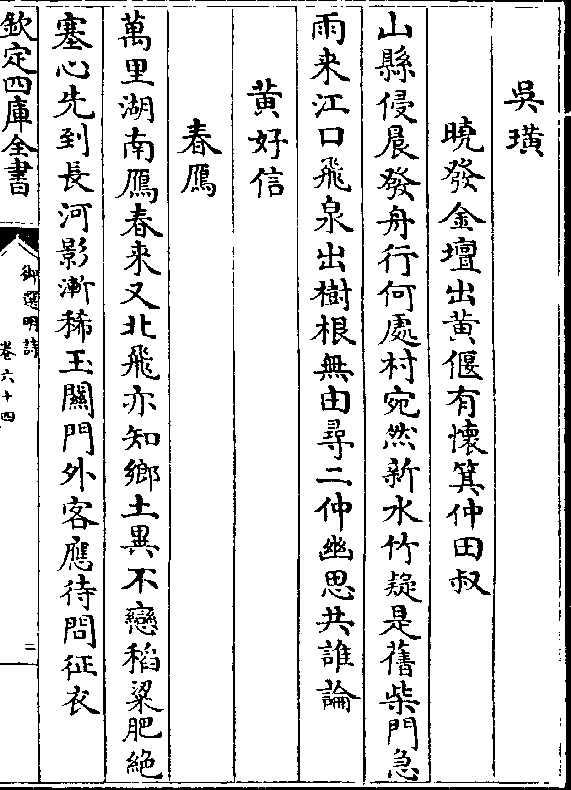 吳璜
曉發金壇出黄偃有懷箕仲田叔
山縣侵晨發舟行何處村宛然新水竹疑是舊柴門急
雨来江口飛泉出樹根無由尋二仲幽思共誰論
黄好信
春鴈
萬里湖南鴈春来又北飛亦知鄉土異不戀稻粱肥絶
塞心先到長河影漸稀玉關門外客應待問征衣
欽定四庫全書
御選明詩
卷六十四
三